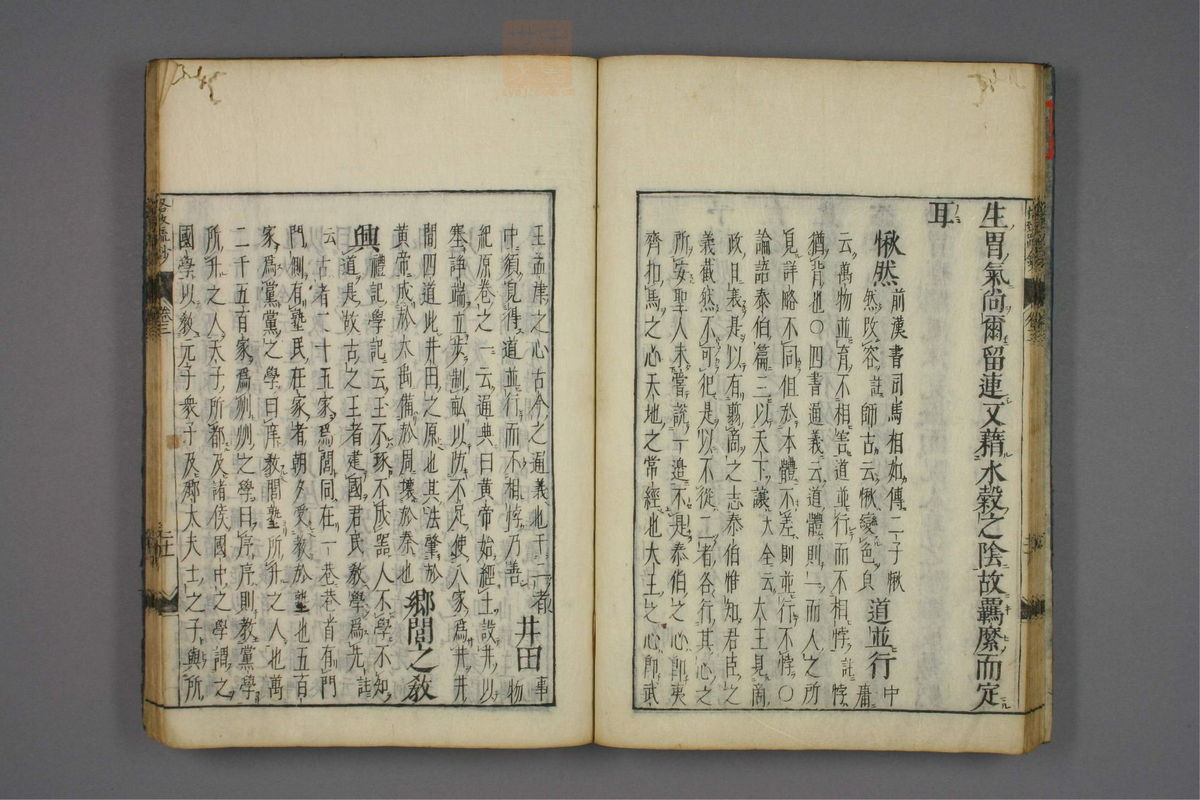 生胃氣尚爾留連又藉水穀之陰故羈縻而定
耳
愀然 前漢書司馬相如傳二子愀
然改容註師古云愀變色貌 道並行 中庸
云萬物並育不相害道並行而不相悖註悖
猶背也○四書通義云道體則一而人之所
見詳略不同但於本體不差則並行不悖○
論語泰伯篇三以天下讓大全云大王見商
政日衰是以有翦商之志泰伯惟知君臣之
義截然不可犯是以不從二者各行其心之
所安聖人未嘗説一邊不是泰伯之心即夷
齊扣馬之心天地之常經也大王之心即武
王孟津之心古今之通義也于二者
中須見得道並行而不相悖乃善 井田 事物
紀原卷之一云通典曰黃帝始經土設井以
塞諍端立步制畝以防不足使八家爲井井
間四道此井田之原也其法肇於
黃帝成於大禹備於周壞於秦也 鄉閭之教
興 禮記學記云玉不琢不成器人不學不知
道是故古之王者建國君民教學爲先註
云古者二十五家爲閭同在一巷巷首有門
門側有塾民在家者朝夕受教於塾也五百
家爲黨黨之學曰庠教閭塾所升之人也萬
二千五百家爲州州之學曰序序則教黨學
所升之人天子所都及諸侯國中之學謂之
國學以教元子衆子及卿大夫士之子與所